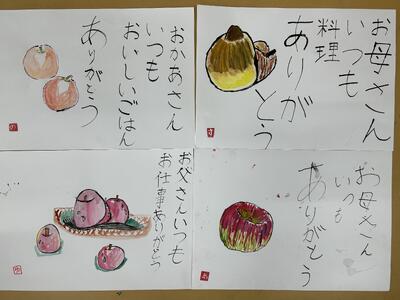 おかあさん
いつも
おいしいごはん
ありがとう
お母さん
いつも
料理
ありが
とう
お父さんいつも
お仕事ありがとう
お母さん
いつも
ありがとう